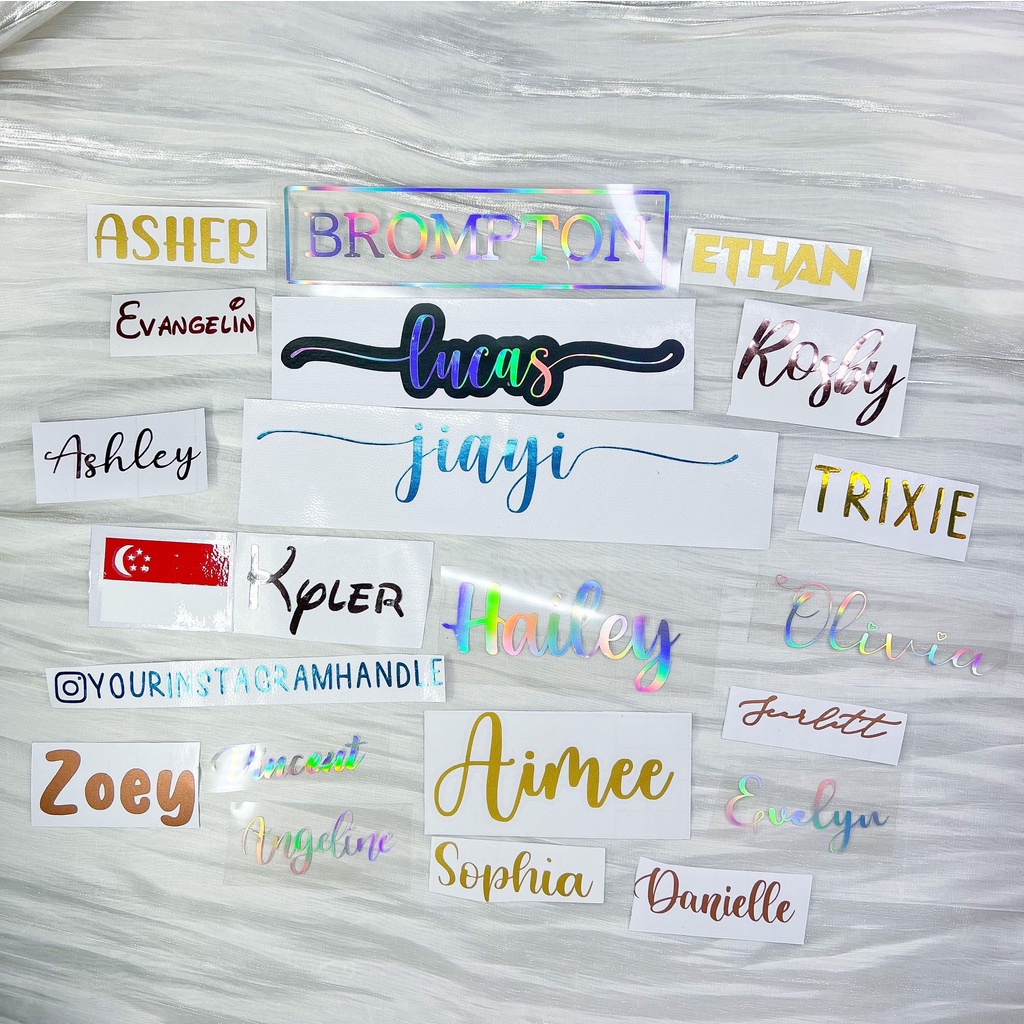 ASHER
BROMPTON
ETHAN
EVANGELIN
lucas
Rosby
Ashley
jiayi
TRIXIE
KYLER
Hailey
Olivia
YOURINSTAGRAMHANDLE
Scarlett
Zoey
Vincent
Aimee
Evelyn
Angeline
Sophia
Danielle